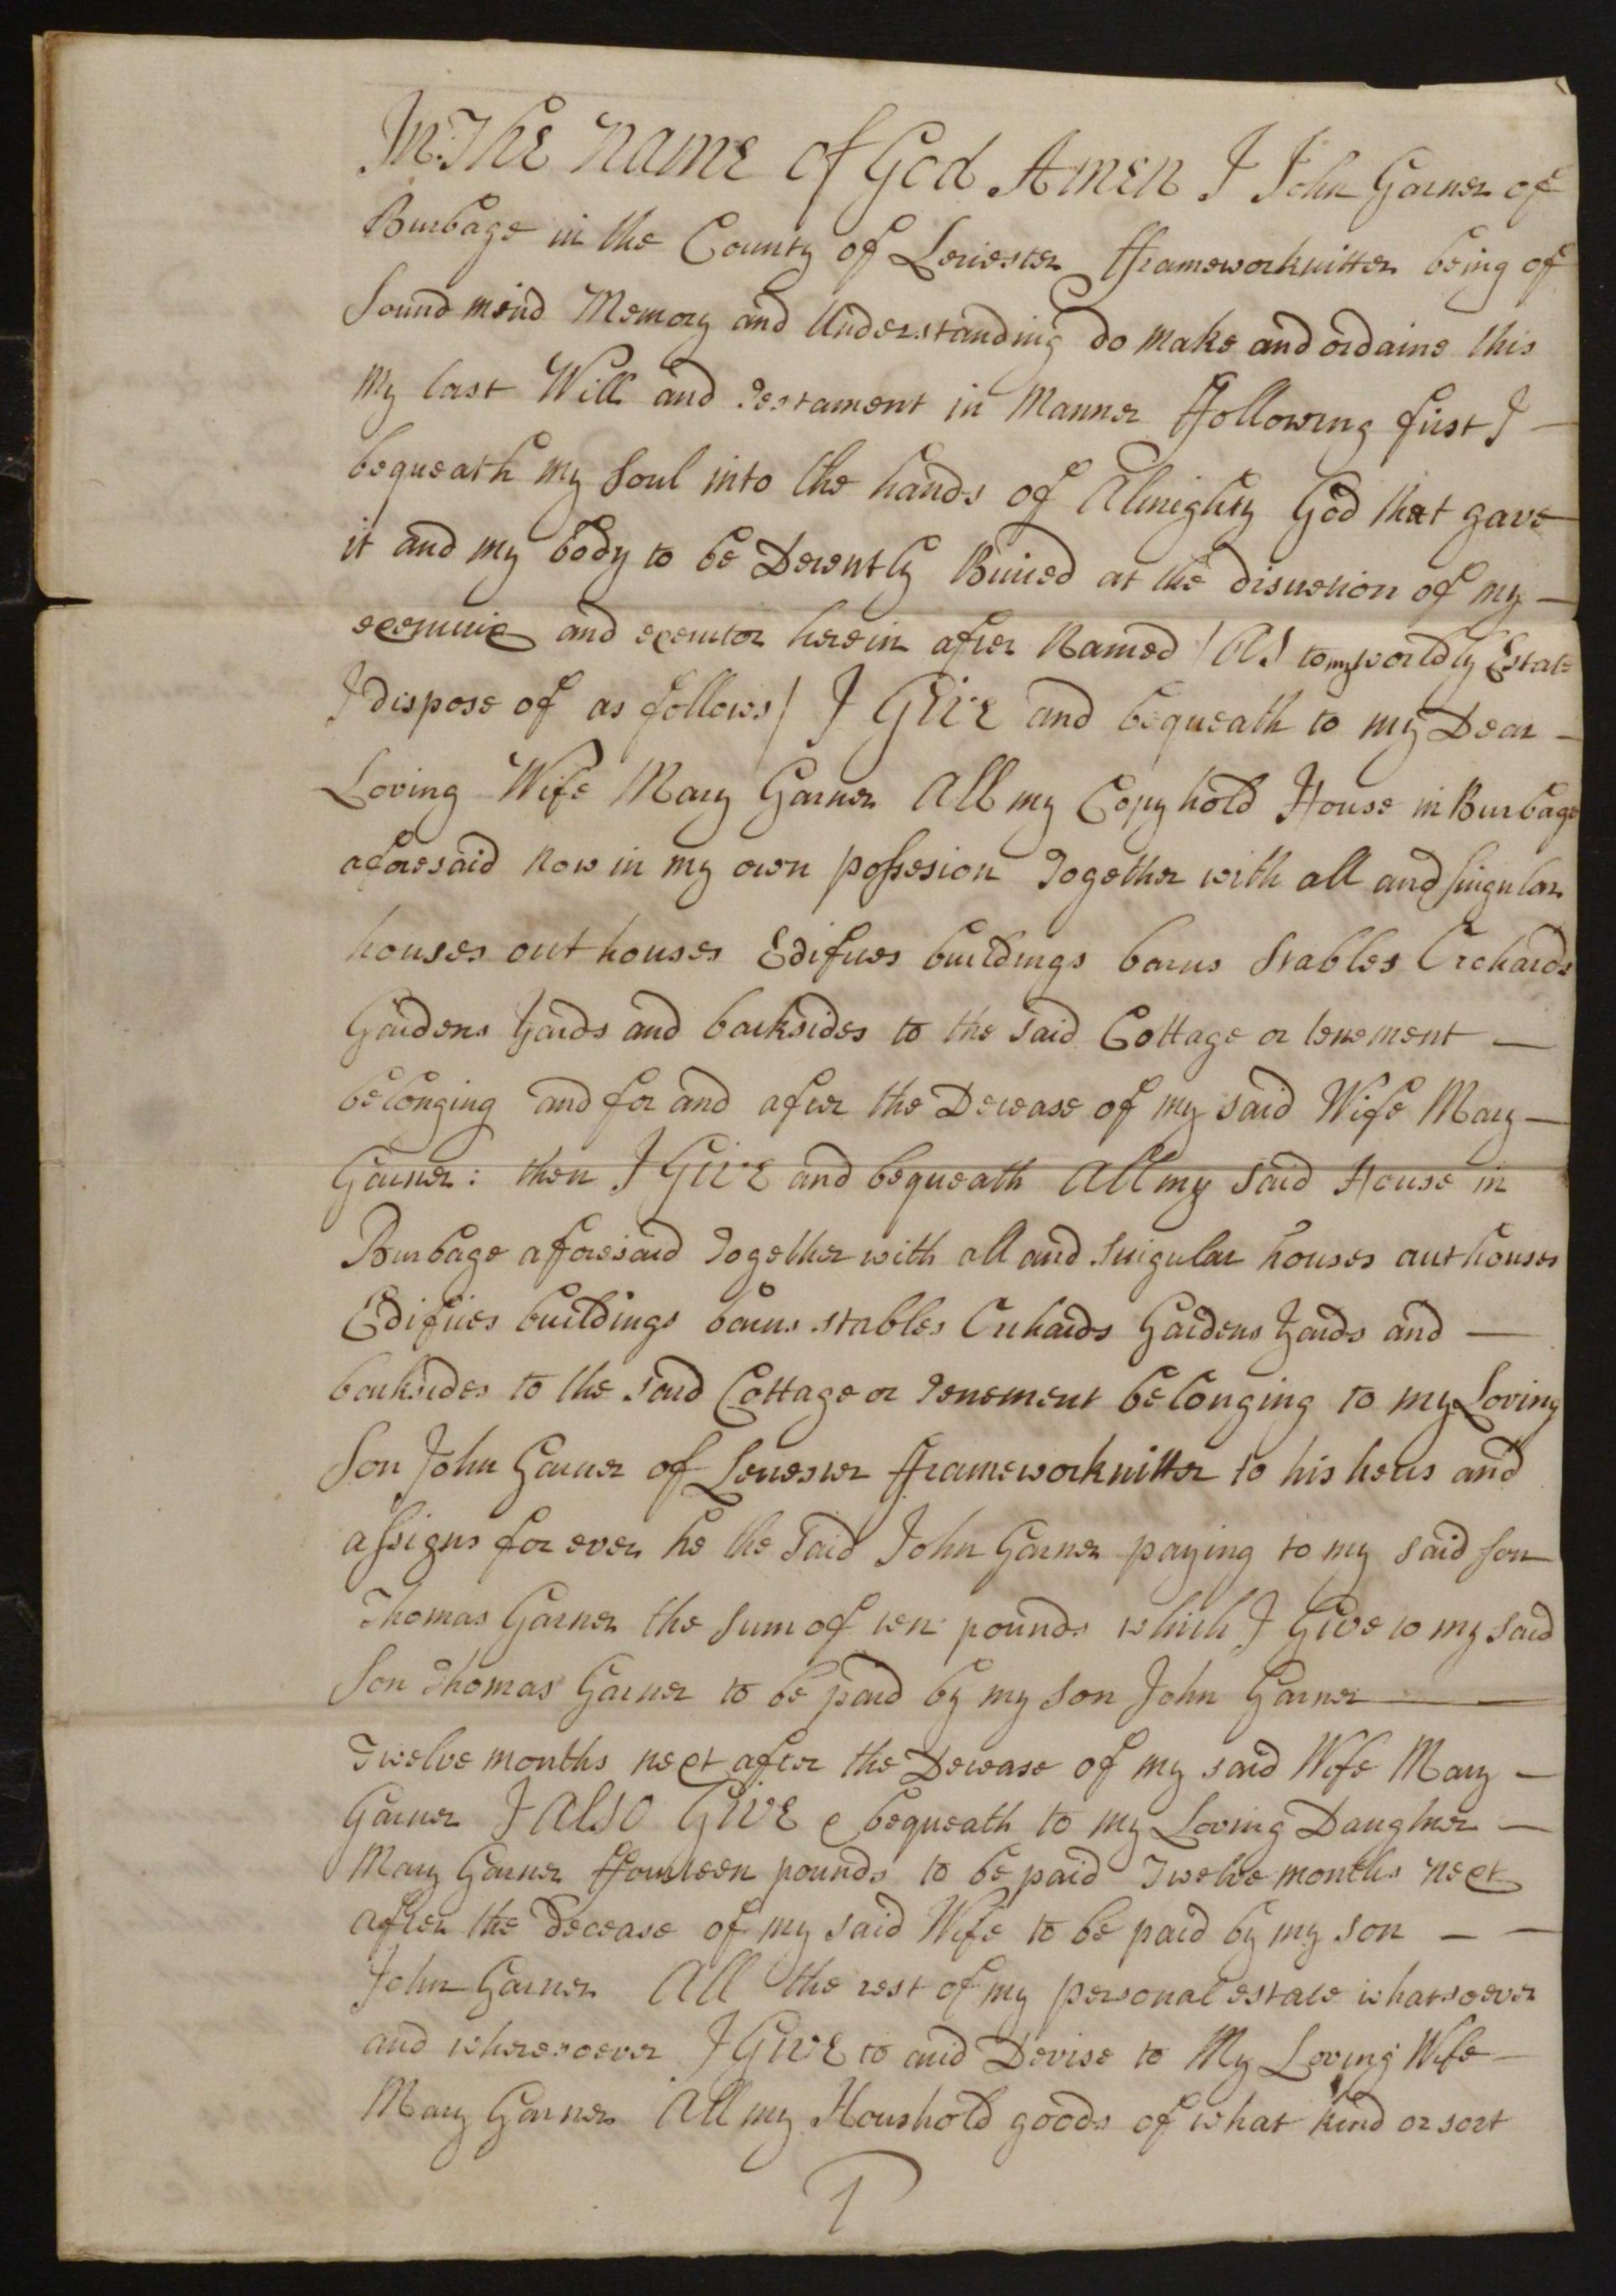 In The Name of God Amen I John Garner of
Burbage in the County of Leicester fframeworknitter being of
Sound mind Memory and Understanding do make and ordaine this
My last Will and Testament in Manner ffollowing first I
bequeath my Soul into the hands of Almighty God that gave
it and my body to be Decently Buried at the discretion of my
executrix and executor herein after Named / As to my worldly Estate
I dispose of as follows / I Give and bequeath to my Dear
Loving Wife Mary Garner All my Copyhold House in Burbage
aforesaid now in my own possesion Together with all and Singular
houses outhouses Edifices buildings barns Stables Orchards
Gardens Yards and backsides to the said Cottage or tenement
belonging and for and after the Decease of my said Wife Mary
Garner : then I Give and bequeath All my said House in
Burbage afforesaid Together with all and Singular houses outhouses
Edifices buildings barns stables Orchards Gardens Yards and
backsides to the said Cottage or Tenement belonging to my Loving
Son John Garner of Leicester fframeworknitter to his heirs and
assigns for ever he the said John Garner paying to my said son
Thomas Garner the Sum of ten pounds which I Give to my said
Son Thomas Garner to be paid by my son John Garner
Twelve months next after the Decease of my said Wife Mary
Garner I Also Give & bequeath to my Loving Daughter
Mary Garner ffourteen pounds to be paid Twelve months next
after the Decease of my said Wife to be paid by my son
John Garner All the rest of my personal estate whatsoever
and wheresoever I Give to and Devise to My Loving Wife
Mary Garner All my Houshold goods of what kind or sort
1